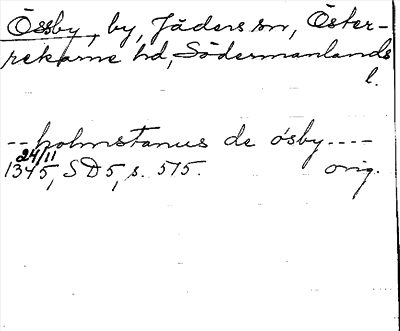 Össby, by, Jäders sn, Öster-
rekarne hd, Södermanlands
l.
--holmstanus de ósby----
24/11
1345, SD5, s. 515. orig.